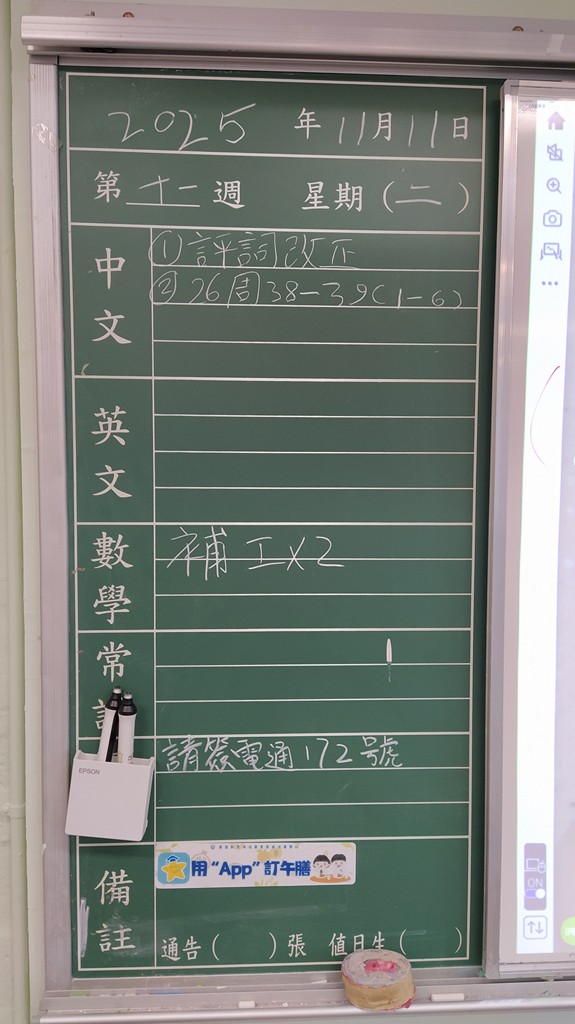 2025 年 11 月 11 日
第 十一 週 星期 (二)
中文
① 評詞改正
② 26周38-39(1-6)
英文
數學
補工x2
常
EPSON
請簽電通172號
備註
用“App”訂午膳
通告( )張 值日生( )
ON